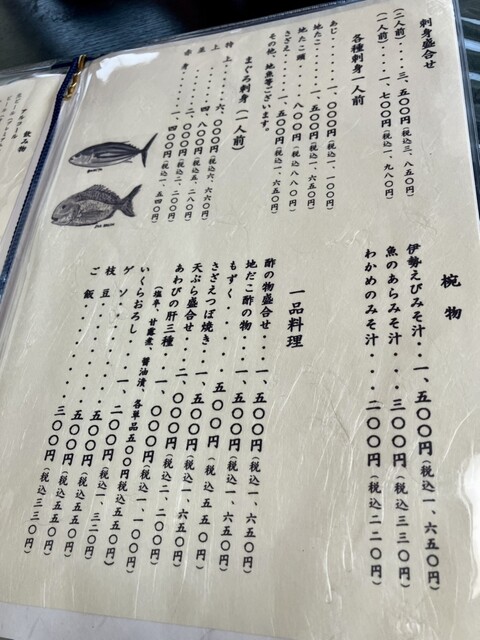 刺身盛合せ
（二人前）・・三、五〇〇円（税込三、八五〇円）
（一人前）・・一、七〇〇円（税込一、九八〇円）
各種刺身一人前
あじ・・・・・一、〇〇〇円（税込一、一〇〇円）
地たこ・・・・一、五〇〇円（税込一、六五〇円）
地たこ頭・・・・八〇〇円（税込八八〇円）
さざえ・・・・一、五〇〇円（税込一、六五〇円）
その他、地魚等ございます。
まぐろ刺身（一人前）
特上・・・・六、〇〇〇円（税込六、六〇〇円）
上・・・・・四、八〇〇円（税込五、二八〇円）
並・・・・・二、〇〇〇円（税込二、二〇〇円）
赤身・・・・一、四〇〇円（税込一、五四〇円）
椀物
伊勢えびみそ汁・・一、五〇〇円（税込一、六五〇円）
魚のあらみそ汁・・・三〇〇円（税込三三〇円）
わかめのみそ汁・・・二〇〇円（税込二二〇円）
一品料理
酢の物盛合せ・・一、五〇〇円（税込一、六五〇円）
地だこ酢の物・・一、五〇〇円（税込一、六五〇円）
もずく・・・・・五〇〇円（税込五五〇円）
さざえつぼ焼き・一、五〇〇円（税込一、六五〇円）
天ぷら盛合せ・・一、五〇〇円（税込一、六五〇円）
あわびの肝三種・・二、〇〇〇円（税込二、二〇〇円）
（塩辛、甘露煮、醤油漬、各単品五〇〇円税込五五〇円）
いくらおろし・・一、〇〇〇円（税込一、一〇〇円）
ゲソ・・・・・一、二〇〇円（税込一、三二〇円）
枝豆・・・・・・五〇〇円（税込五五〇円）
ご飯・・・・・・三〇〇円（税込三三〇円）
飲み物
アルコール